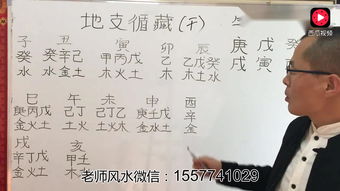 西瓜视频
地支循藏(干)
子 丑 寅 卯 辰 庚 戊
癸 癸辛己 甲丙戊 乙 乙戊癸 戌 寅
水 水金土 木火土 木 木土水
巳 午 未 申 酉
庚丙戊 丁己 己丁乙 庚壬戊 辛
金火土 火土 土火木 金水土 金
戌 亥
辛丁戊 甲壬
金火土 木
老师风水微信：1557741029